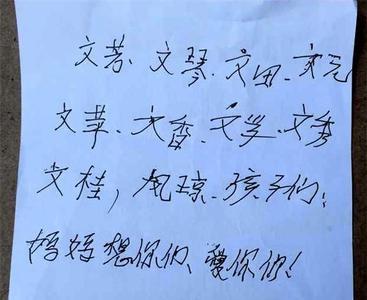 文芳、文琴、文田、文元
文苹、文香、文芝、文秀
文桂，凤琼、孩子们：
妈妈想你们、爱你们！